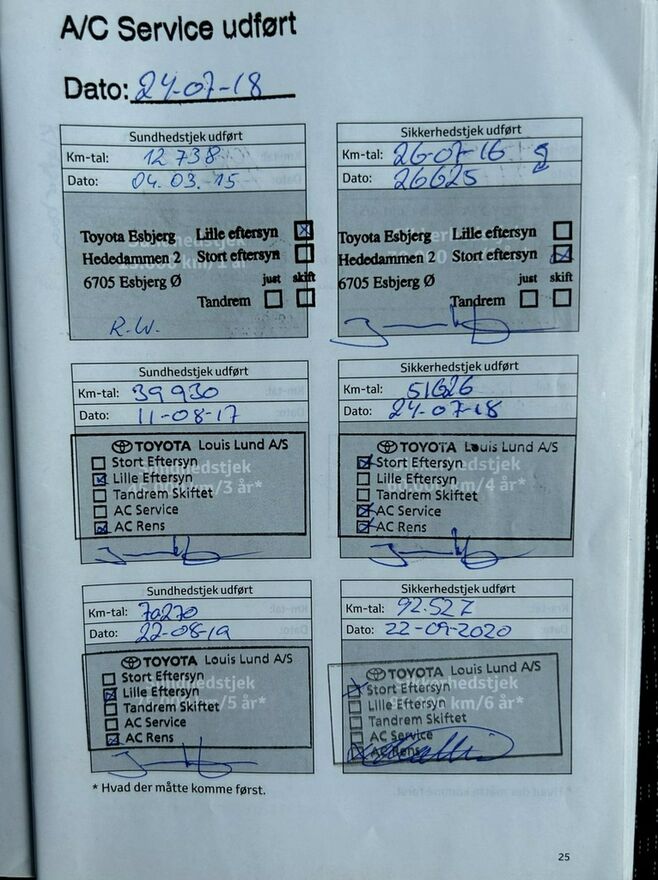 A/C Service udført
Dato: 24-07-18
Sundhedstjek udført
Km-tal: 12 738
Dato: 04.03.-15
Toyota Esbjerg Lille eftersyn
Hededammen 2 Stort eftersyn
6705 Esbjerg Ø just skift
Tandrem
R.W.
Sikkerhedstjek udført
Km-tal: 26-07-16
Dato: 26625
Toyota Esbjerg Lille eftersyn
Hededammen 2 Stort eftersyn
6705 Esbjerg Ø just skift
Tandrem
Sundhedstjek udført
Km-tal: 39930
Dato: 11-08-17
TOYOTA Louis Lund A/S
Stort Eftersyn
Lille Eftersyn
Tandrem Skiftet
km/3 år*
AC Service
AC Rens
Sikkerhedstjek udført
Km-tal: 51626
Dato: 24-07-18
TOYOTA Louis Lund A/S
Stort Eftersyn
Lille Eftersyn
Tandrem Skiftet
60.000 km/4 år*
AC Service
AC Rens
Sundhedstjek udført
Km-tal: 70270
Dato: 22-08-19
TOYOTA Louis Lund A/S
Stort Eftersyn
Lille Eftersyn
Tandrem Skiftet
km/5 år*
AC Service
AC Rens
Sikkerhedstjek udført
Km-tal: 92.527
Dato: 22-09-2020
TOYOTA Louis Lund A/S
Stort Eftersyn
Lille Eftersyn
km/6 år*
Tandrem Skiftet
AC Service
AC Rens
* Hvad der måtte komme først.
25